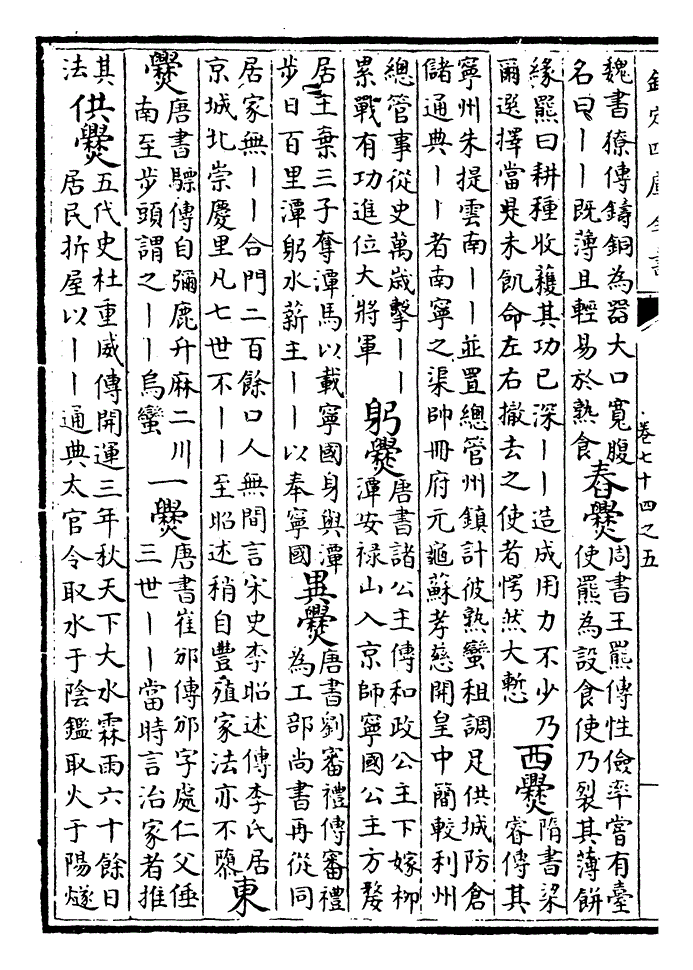 欽定四庫全書
卷七十四之五
魏書獠傳鑄銅為器大口寬腹
名曰丨丨既薄且輕易於熟食
舂爨
周書王羆傳性儉率嘗有臺
使羆為設食使乃裂其薄餅
緣羆曰耕種收穫其功已深丨丨造成用力不少乃
爾選擇當是未飢命左右撤去之使者愕然大慙
西爨
隋書梁
睿傳其
寧州朱提雲南丨丨並置總管州鎮計彼熟蠻租調足供城防倉
儲通典丨丨者南寧之渠帥冊府元龜蘇孝慈開皇中簡較利州
總管事從史萬歲擊丨丨
累戰有功進位大將軍
躬爨
唐書諸公主傳和政公主下嫁柳
潭安祿山入京師寧國公主方嫠
居主棄三子奪潭馬以載寧國身與潭
步日百里潭躬水薪主丨丨以奉寧國
異爨
唐書劉審禮傳審禮
為工部尚書再從同
居家無丨丨合門二百餘口人無間言宋史李昭述傳李氏居
京城北崇慶里凡七世不丨丨至昭述稍自豐殖家法亦不隳
東
爨
唐書驃傳自彌鹿升麻二川
南至步頭謂之丨丨烏蠻
一爨
唐書崔邠傳邠字處仁父倕
三世丨丨當時言治家者推
其
法
供爨
五代史杜重威傳開運三年秋天下大水霖雨六十餘日
居民拆屋以丨丨通典太官令取水于陰鑑取火于陽燧